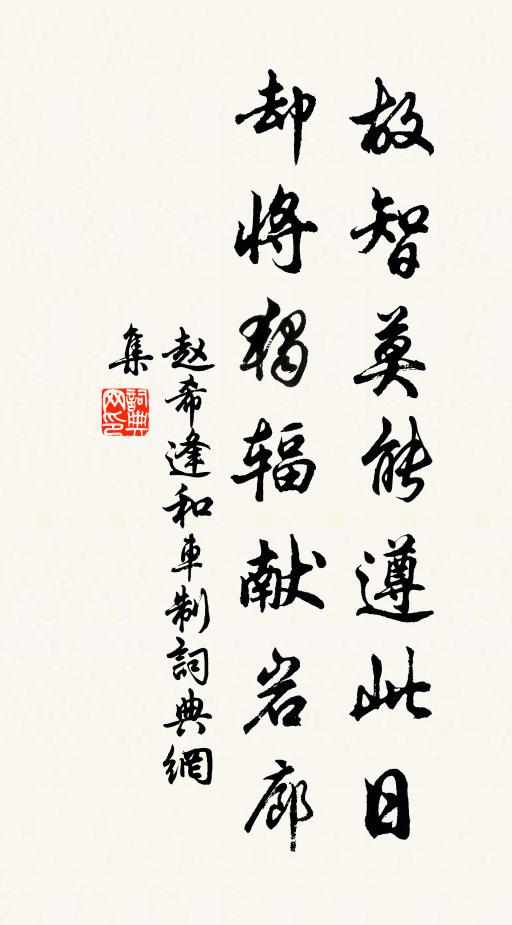 故智莫能遵此日
却將獨辐献岩廊
赵希逢和車制詞典網
集
詞典
网印